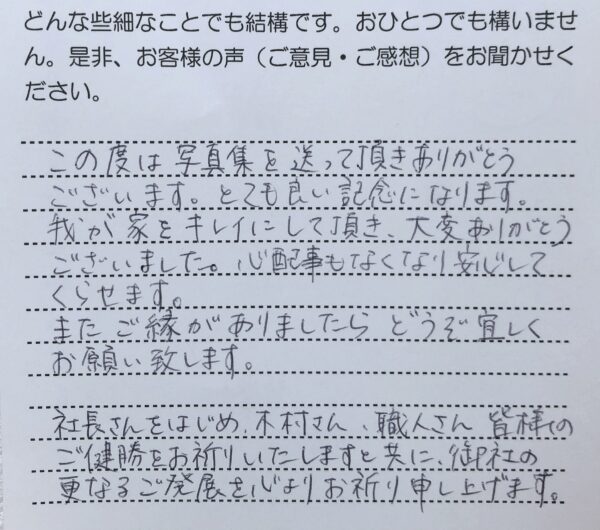 どんな些細なことでも結構です。おひとつでも構いませ
ん。是非、お客様の声（ご意見・ご感想）をお聞かせく
ださい。
この度は写真集を送って頂きありがとう
ございます。とても良い記念になります。
我が家をキレイにして頂き、大変ありがとう
ございました。心配事もなくなり安心して
くらせます。
またご縁がありましたらどうぞ宜しく
お願い致します。
社長さんをはじめ、木村さん、職人さん皆様の
ご健勝をお祈りいたしますと共に、御社の
更なるご発展を心よりお祈り申し上げます。